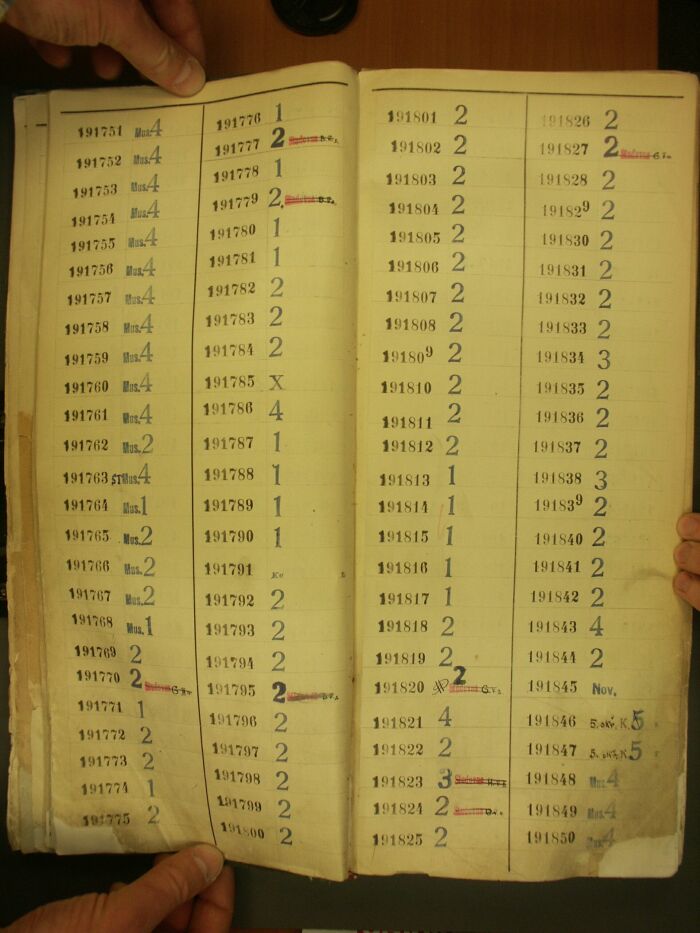 191751 Mus.4
191752 Mus.4
191753 Mus.4
191754 Mus.4
191755 Mus.4
191756 Mus.4
191757 Mus.4
191758 Mus.4
191759 Mus.4
191760 Mus.4
191761 Mus.4
191762 Mus.2
191763 STMus.4
191764 Mus.1
191765 Mus.2
191766 Mus.2
191767 Mus.2
191768 Mus.1
191769 2
191770 2
191771 1
191772 2
191773 2
191774 1
191775 2
191776 1
191777 2
191778 1
191779 2.
191780 1
191781 1
191782 2
191783 2
191784 2
191785 X
191786 4
191787 1
191788 1
191789 1
191790 1
191791
191792 2
191793 2
191794 2
191795 2
191796 2
191797 2
191798 2
191799 2
191800 2
191801 2
191802 2
191803 2
191804 2
191805 2
191806 2
191807 2
191808 2
191809 2
191810 2
191811 2
191812 2
191813 1
191814 1
191815 1
191816 1
191817 1
191818 2
191819 2
191820 2
191821 4
191822 2
191823 3
191824 2
191825 2
191826 2
191827 2
191828 2
191829 2
191830 2
191831 2
191832 2
191833 2
191834 3
191835 2
191836 2
191837 2
191838 3
191839 2
191840 2
191841 2
191842 2
191843 4
191844 2
191845 Nov.
191846 5. okr. K. 5
191847 5. okr. K. 5
191848 Mus.4
191849 Mus.4
191850 Mus.4